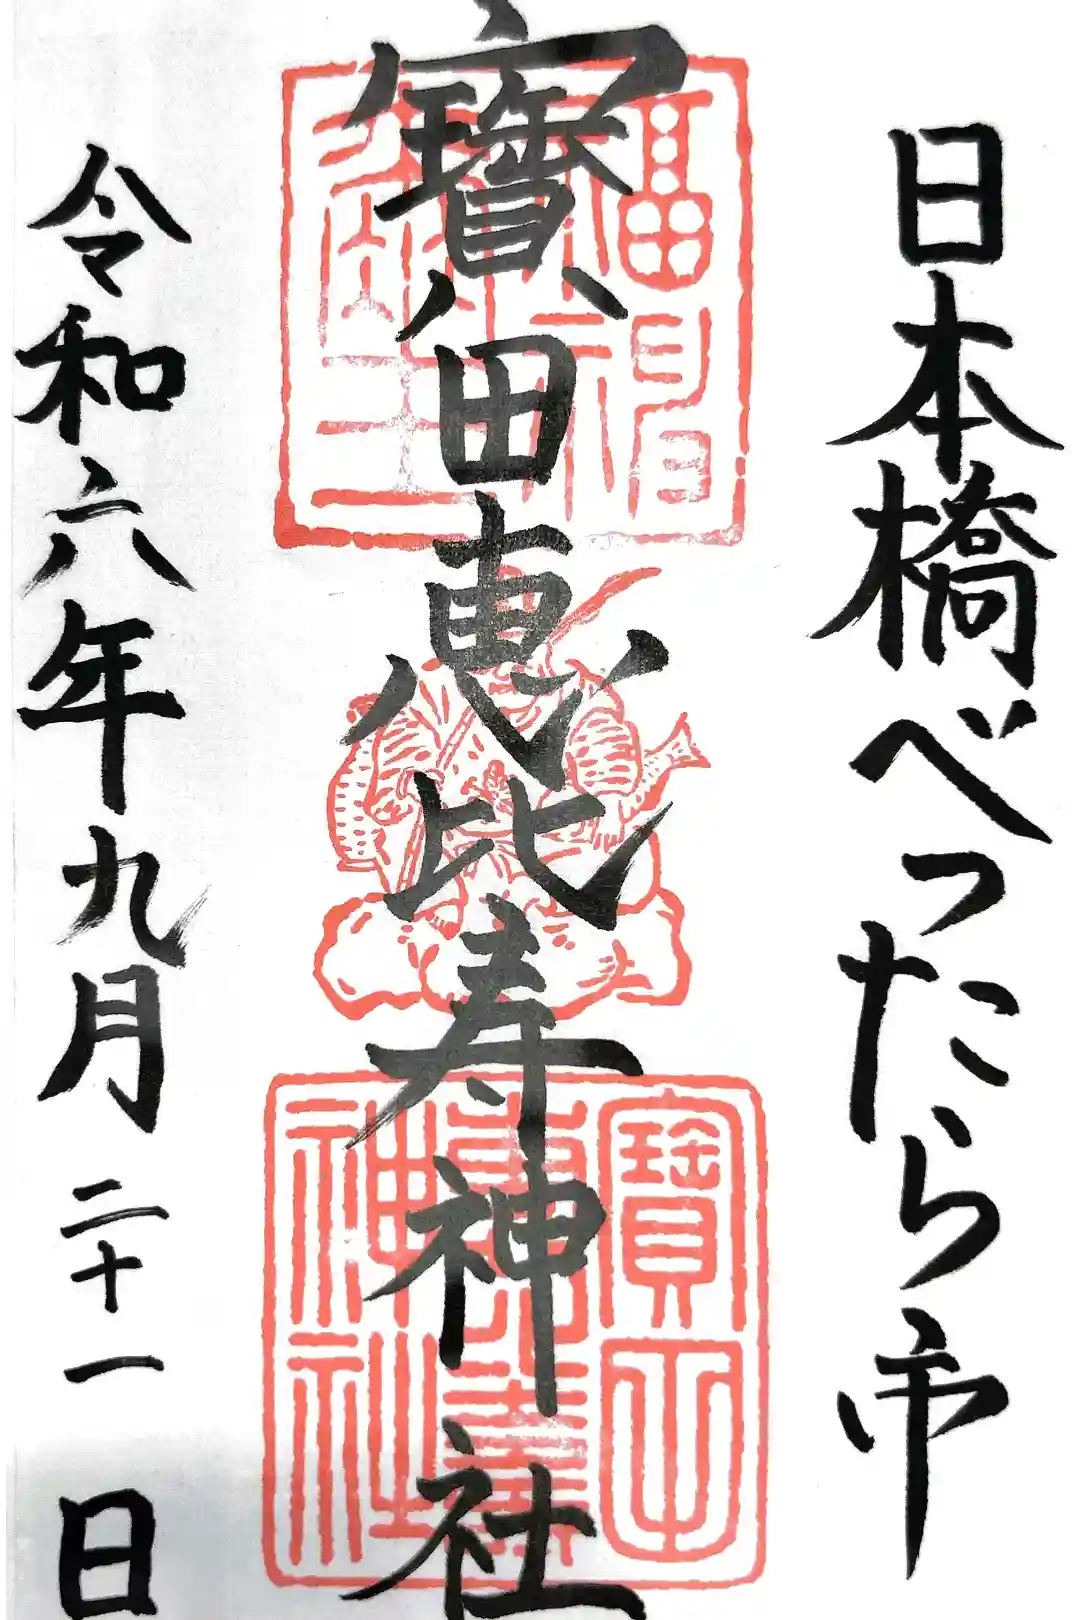 日本橋べったら市
寶田恵比寿神社
令和六年九月二十一日